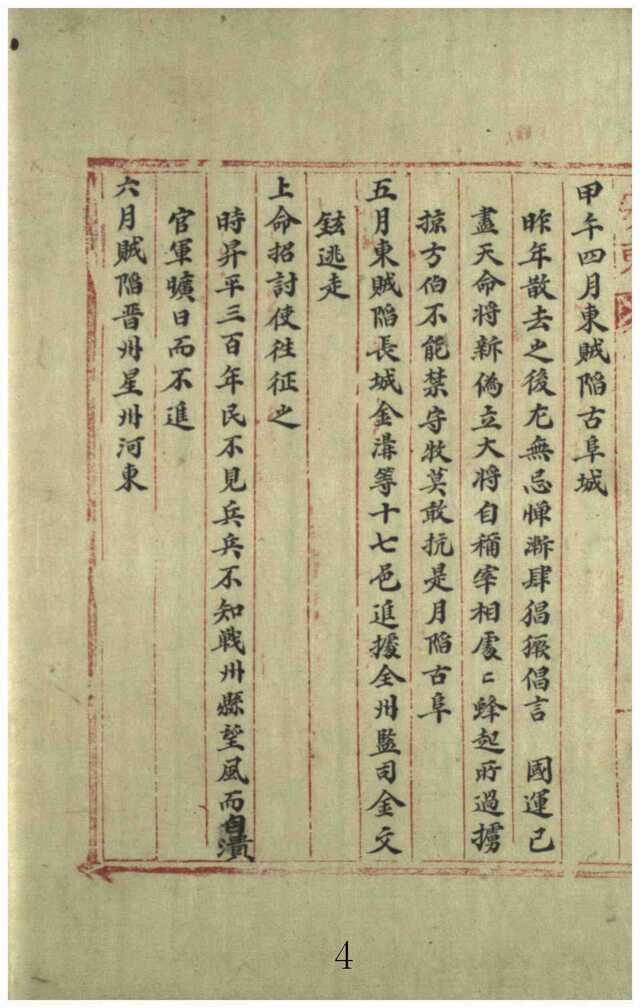 甲午四月東賊陷古阜城
昨年散去之後尤無忌憚漸肆猖獗倡言　國運已
盡天命將新僞立大將自稱宰相處〻蜂起所過擄
掠方伯不能禁守牧莫敢抗是月陷古阜
五月東賊陷長城金溝等十七邑進據全州監司金文
鉉逃走
上命招討使徃征之
時昇平三百年民不見兵兵不知戰州縣望風而自潰
官軍曠日而不進
六月賊陷晋州星州河東
4